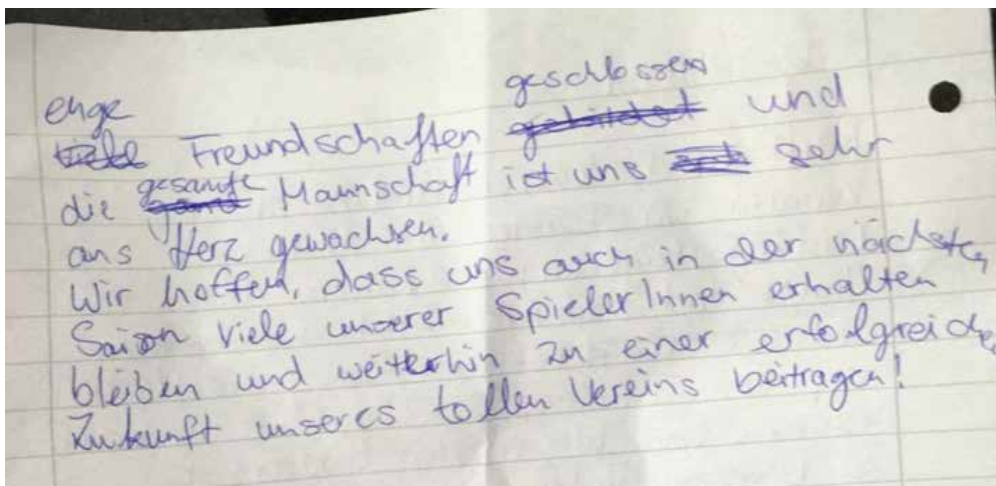 enge geschlossen
Freundschaften und
die gesamte Mannschaft ist uns sehr
ans Herz gewachsen.
Wir hoffen, dass uns auch in der nächsten
Saison viele unserer SpielerInnen erhalten
bleiben und weiterhin zu einer erfolgreichen
Zukunft unseres tollen Vereins beitragen!